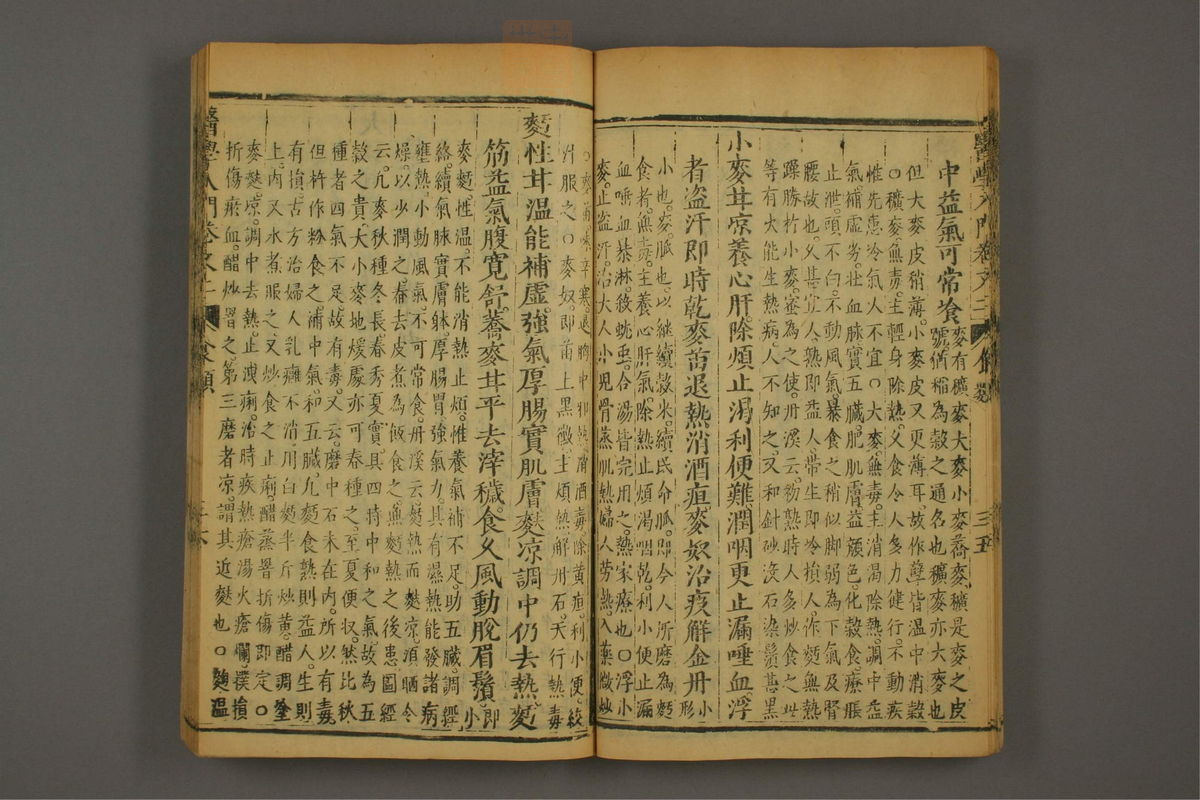 中益氣可常飡麥有穬麥大麥小麥蕎麥穬是麥之皮
號猶稻為穀之通名也穬麥亦大麥也
但大麥皮稍薄小麥皮又更薄耳故作糵皆溫中消穀
○穬麥無毒主輕身除熱久食令人多力健行不動疾
惟先患冷氣人不宜○大麥無毒主消渴除熱調中益
氣補虛劣壯血脉實五臟肥肌膚益顏色化穀食療脹
止泄頭不白不動風氣暴食之稍似脚弱為下氣及腎
腰故也久甚宜人熟即益人帶生即冷損人作麪無熱
躁勝於小麥蜜為之使丹溪云初熟時人多炒食之此
等有火能生熱病人不知之又和針砂沒石染鬚甚黑
小麥甘涼養心肝除煩止渴利便難潤咽更止漏唾血浮
者盜汗即時乾麥苗退熱消酒疸麥奴治疫解金丹小
形
小也麥脉也以継續穀米續民命脉即今人所磨為麪
食者無毒主養心肝氣除熱止煩渴咽乾利小便止漏
血唾血暴淋殺蚘虫合湯皆完用之熱家療也○浮小
麥止盜汗治大人小兒骨蒸肌熱婦人勞熱入藥微炒
○麥苗味辛寒退胸中邪熱消酒毒除黄疸利小便絞
汁服之○麥奴即苗上黑黴主煩熱解丹石天行熱毒
麪性甘溫能補虛強氣厚腸實肌膚麩涼調中仍去熱麪
筋益氣腹寬舒蕎麥甘平去滓穢食久風動脫眉鬚即
小
麥麪性溫不能消熱止煩惟養氣補不足助五臟調經
絡續氣脉實膚躰厚腸胃強氣力其有濕熱能發諸病
壅熱小動風氣不可常食丹溪云麪熱而麩涼須晒令
燥以少潤之舂去皮煮為飯食之無麪熱之後患圖經
云凢麥秋種冬長春秀夏實具四時中和之氣故為五
穀之貴大小麥地煖處亦可春種之至夏便収然比秋
種者四氣不足故有毒又云磨中石末在内所以有毒
但杵作粉食之補中氣和五臟凢麪食熟則益人生則
有損古方治婦人乳癰不消川白麪半斤炒黄醋調塗
上内又水煮服之又炒食之止痢醋蒸罯折傷即定○
麥麩涼調中去熱止洩痢治時疾熱瘡湯火瘡爛撲損
折傷瘀血醋炒罯之第三磨者涼謂其近麩也○麯溫
醫學入門卷之二 食類 三五
醫學入門卷之二 食類 三六